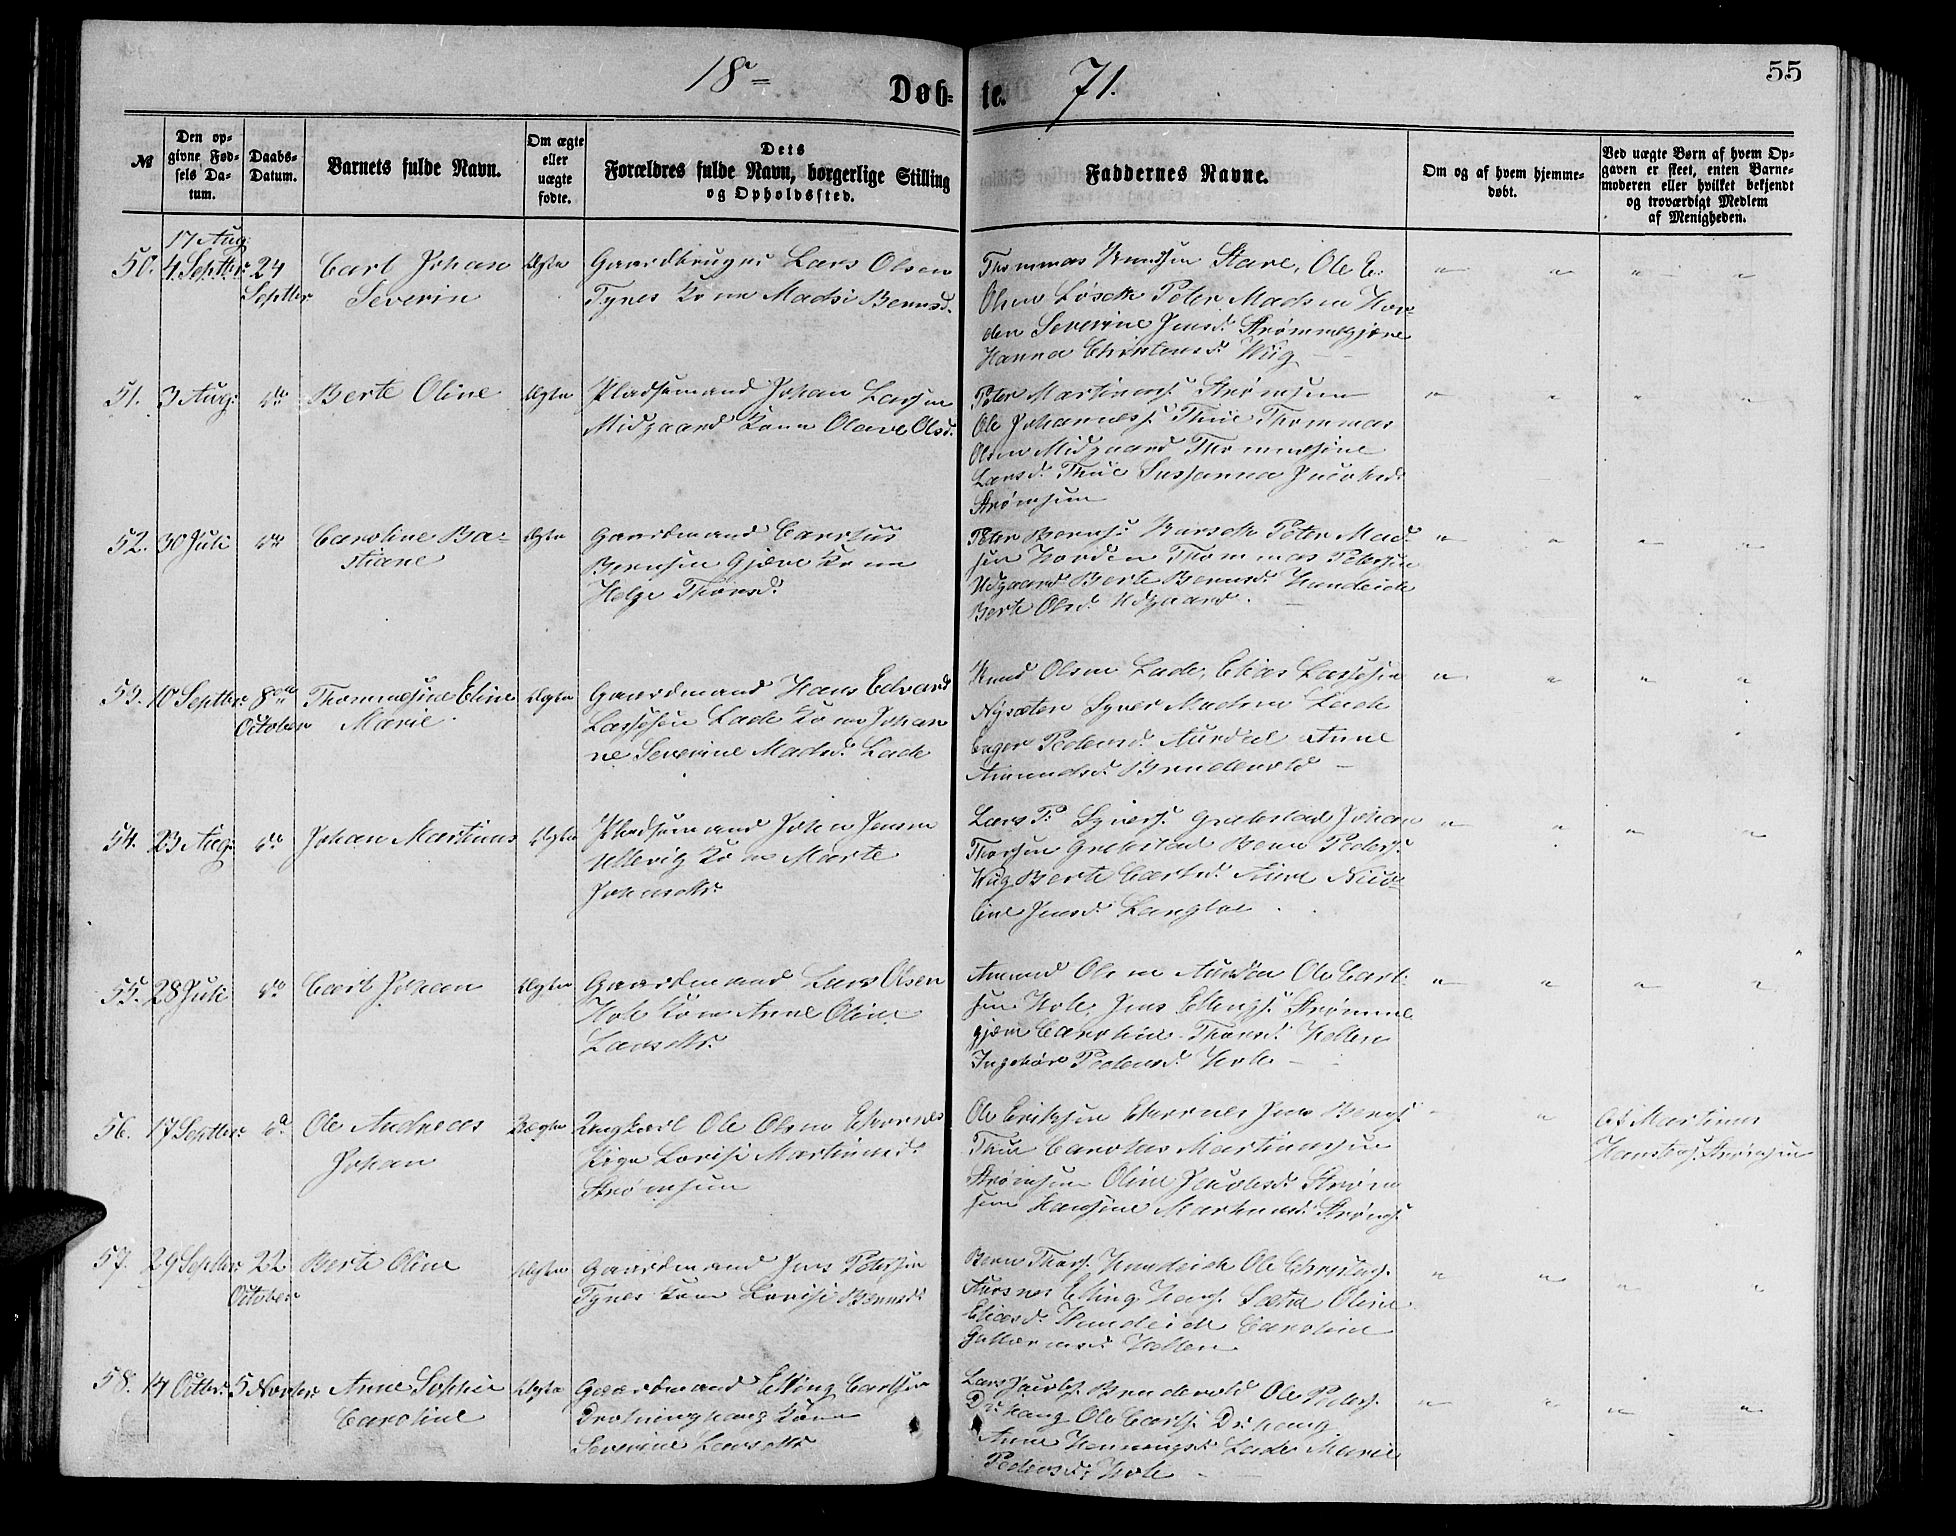 55
18 71.
Døb- te.
№
Den op-
givne Fød-
sels Da-
tum.
Daabs-
Datum.
Barnets fulde Navn.
Om ægte
eller
uægte
fødte.
Dets
Forældres fulde Navn, borgerlige Stilling
og Opholdssted.
Faddernes Navne.
Om og af hvem hjemme-
døbt.
Ved uægte Børn af hvem Op-
gaven er skeet, enten Barne-
moderen eller hvilket bekjendt
og troværdigt Medlem
af Menigheden.
17 Aug:
50. 4 Septbr: 24 Carl Johan Ægte Gaardbruger Lars Olsen
Septbr Severin Tynes Kone Madsi Bernsd.
Thommas Stave, Ole E.
Olsen Peter Madsen Hov-
den Severine Jensd. Strømmegjære
Hanna Wiig
51. 3 Aug: do Berte Oline Ægte Pladsemand Johan Larsen
Midgaard Kone Olave Olsd.
Peter Martinus. Strømsem
Ole Johannes. Thue Thommas
Olsen Midgaard Thommesine
Larsd. Thue Sussanna Jacobsd.
Strømsem
52. 30 Juli do Caroline Ba- Ægte Gaardmand
stiane Bernsen Gjære Kone
Helge Thorsd.
Peter Berns. Peter Mad-
sen Hovden Thommas Petersen
Udgaard Berte Bernsd. Hundeide
Berte Olsd. Udgaard.
53. 10 Septbr: 8de Thommesine Eline Ægte Gaardmand Hans Edvard
October Marie. Lade Kone Johan
ne Severine Madsd. Lade
Knud Olsen Lade, Elias
Nysæter Syver Madsen Lade
Pedersd. Aurdal Anne
Amundsd. Brudevold
54. 23 Aug: do Johan Martinus Ægte Pladsemand Johan Jensen
Ullevig Kone Marte
Johansdtr.
Lars P. Syvers. Grebstad Johan
Thorsen Grebstad Bern Peders.
Wiig Berte Carlsd. Anne Nico-
line Jensd. Langloe.
55. 28 Juli do Carl Johan Ægte Gaardmand Lars Olsen
Hole Kone Anne Oline
Larsdtr.
Amund Olsen Aurdal Ole Carl-
sen Hole, Jens Ellings. Strømme
gjære Caroline Thorsd. Hellen
Ingebor Pedersd. Hole
56. 17 Septbr: do Ole Andreas Uægte Ungkarl Ole Olsen
Johan Pige Lovise Martinusd.
Strømsem
Ole Eriksen Jens Bengts.
Thue Carolus Martinussen
Strømsem Oline Jacobsd. Strøm
sem Hansine Martinusd. Strøms.
Af Martinus
Strømsem
57. 29 Septbr 22 Berte Oline Ægte Gaardmand Jens Petersen
October Tynes Kone Lovise Bernsd.
Bern Thors. Hundeide Ole
Aursnes Elling Hans. Sætre Oline
Eliasd. Hundeide Caroline
Guttormsd. Hellen
58. 14 Octbr: 5 Novbr: Anne Sophie Ægte Gaardmand Elling Carlsen
Caroline Drotninghaug Kone
Severine Larsdtr
Lars Jacobs. Brudevold Ole Peders.
Dr:haug Ole Carls. Dr:haug
Anne Henningsd. Lade Marie
Pedersd. Hole